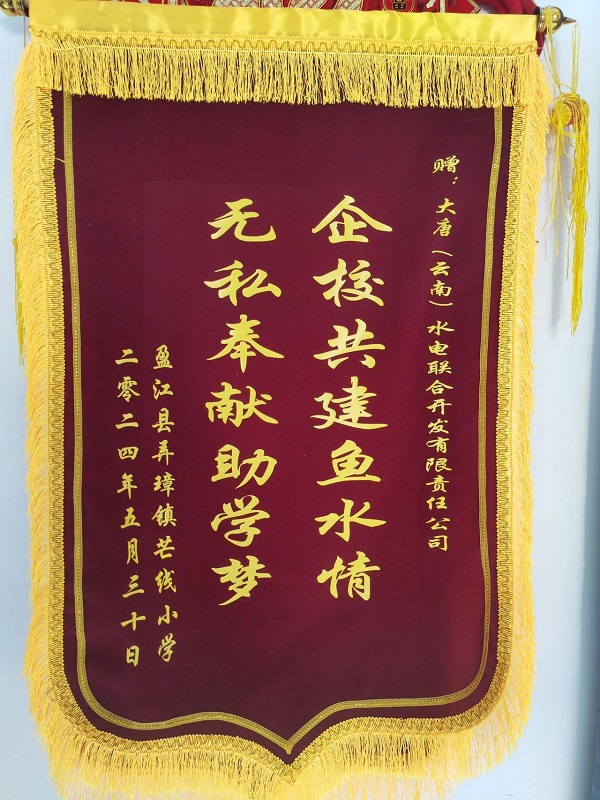 赠：大唐（云南）水电联合开发有限责任公司
企校共建鱼水情
无私奉献助学梦
盈江县弄璋镇芒线小学
二零二四年五月三十日